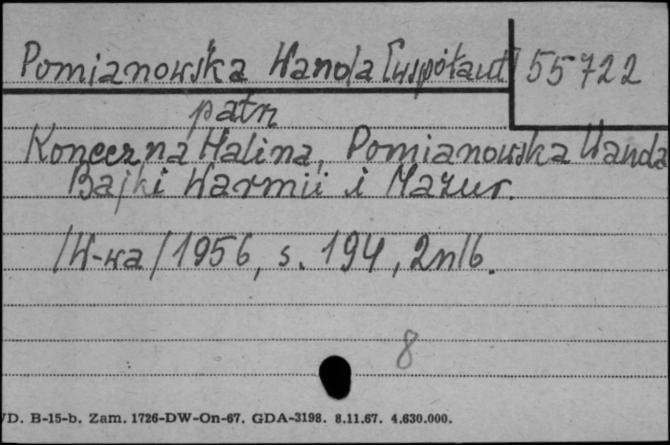 Pomianowska Wanda [współaut]
55722
patrz
Koneczna Halina, Pomianowska Wanda
Bajki Warmii i Mazur.
/W-wa/1956, s. 194, 2nlb.
8
/D. B-15-b. Zam. 1726-DW-On-67. GDA-3198. 8.11.67. 4.630.000.